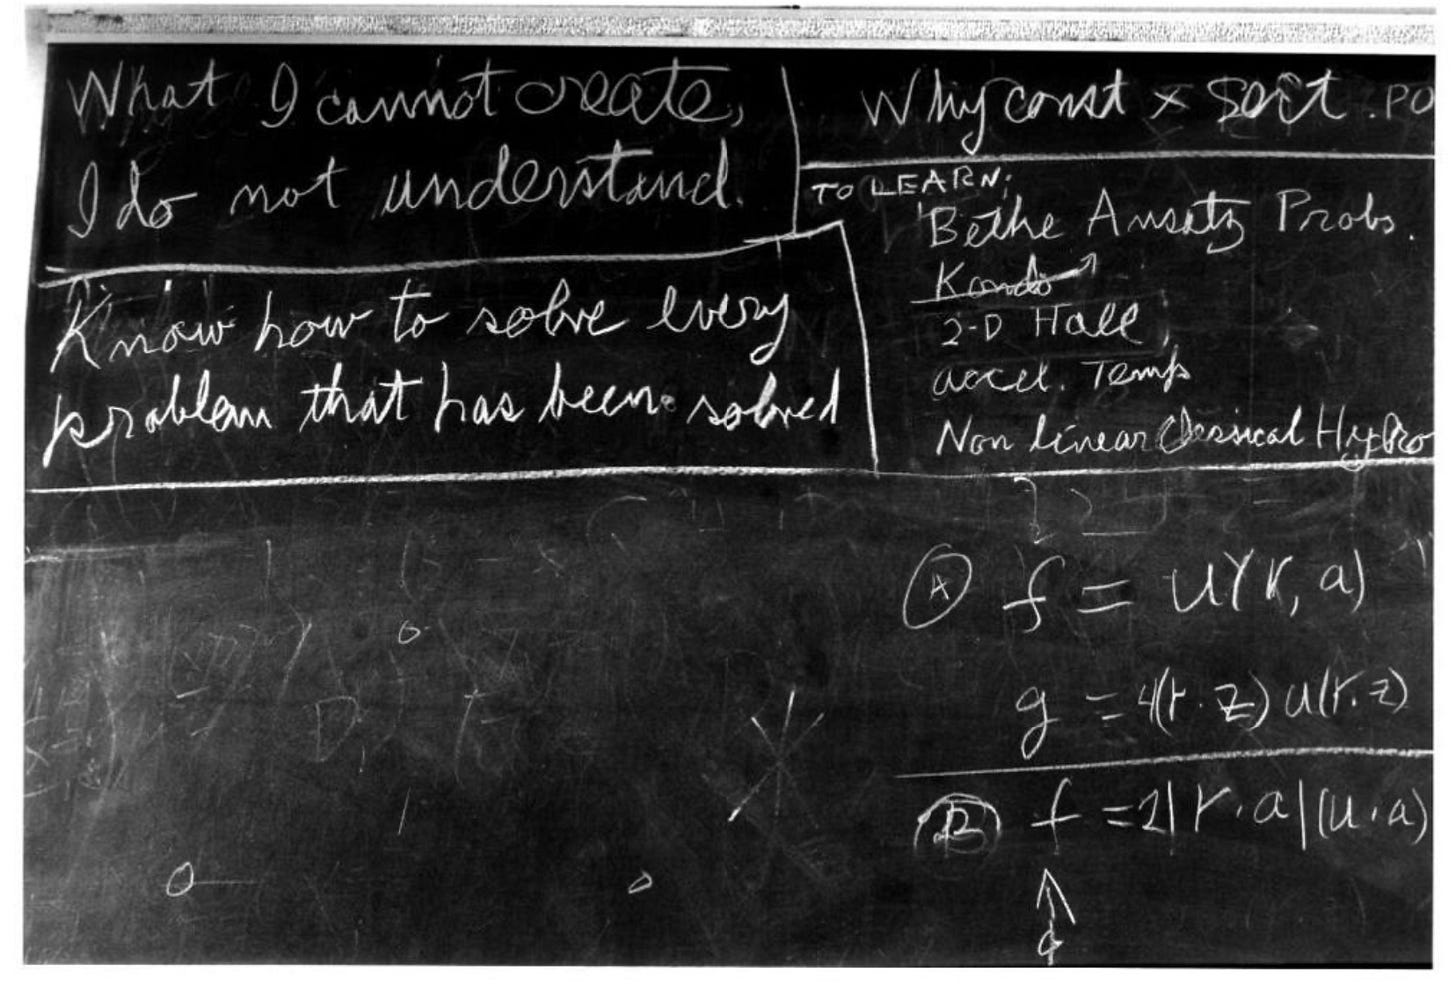 What I cannot create,
I do not understand.
Know how to solve every
problem that has been solved
Why const × sort . PO
TO LEARN:
Bethe Ansatz Probs.
Kondo
2-D Hall
accel. Temp
Non linear Classical Hydro
A f = u(r, a)
g = 4(r·z) u(r.z)
B f = 2|r·a|(u·a)